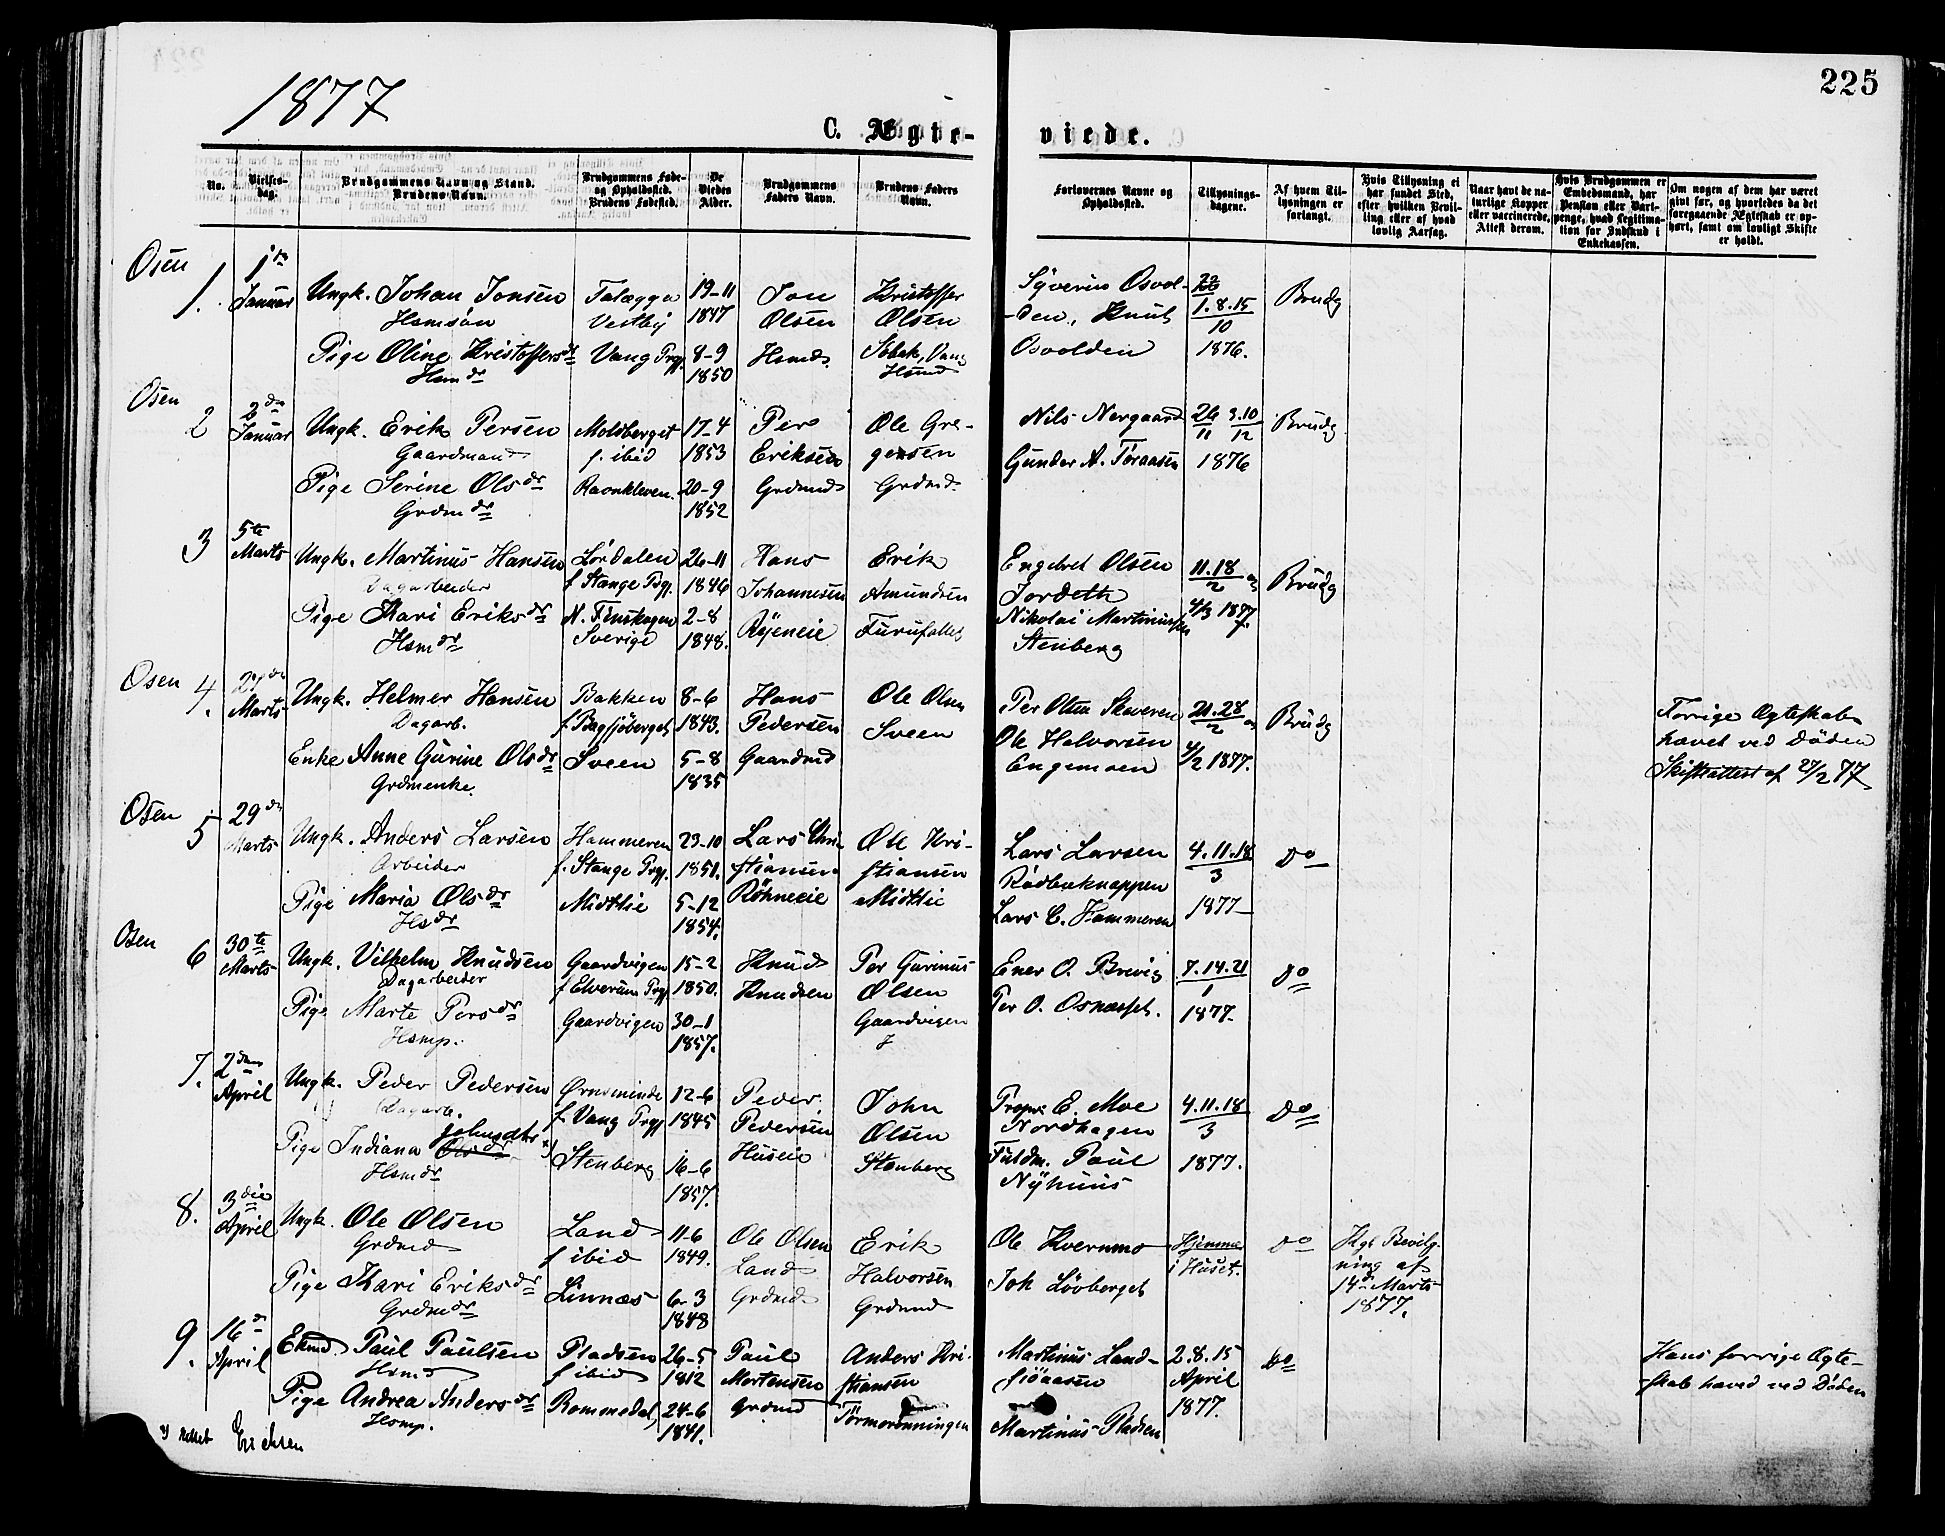 1877
225
C. Ægte-
viede.
No.
Vielses-
dag.
Brudgommens Navn og Stand.
Brudens Navn.
Brudgommens Føde-
og Opholdssted.
Brudens Fødested.
De
Viedes
Alder.
Brudgommens
Faders Navn.
Brudens Faders
Navn.
Forlovernes Navne og
Opholdssted.
Tillysnings-
dagene.
Af hvem Til-
lysningen er
forlangt.
Hvis Tillysning ei
har fundet Sted,
efter hvilken Bevil-
ling eller af hvad
lovlig Aarsag.
Naar havt de na-
turlige Kopper
eller vaccinerede,
Attest derom.
Hvis Brudgommen er
Embedsmand, har
Pension eller Vart-
penge, hvad Legitima-
tion for Indskud i
Enkekassen.
Om nogen af dem har været
gift før, og hvorledes da det
foregaaende Ægteskab er op-
hørt, samt om lovligt Skifte
er holdt.
Osen
1.
1ste
Januar
Ungk. Johan Jonsen
Husmsøn
Pige Oline Kristoffersdr
Husmdr
Vestby
Vang Prgj.
19-11
1847
8-9
1850
Jon
Olsen
Husmd.
Kristoffer
Olsen
Vang
Husmd
Syverin Osvol-
den, Knut
Osvolden
1.8.15
10
1876.
Brudg
Osen
2
2den
Januar
Ungk. Erik Persen
Gaardmand
Pige Serine Olsdr
Grdmdr
Moldberget
f. ibid
Ravnkleven.
17-4
1853
20-9
1852
Per
Eriksen
Grdmd
Ole Gre-
gersen
Grdmd.
Nils Nergaard
Gunder A. Toraasen
26 3.10
11 12
1876
Brudg
3
5te
Marts
Ungk. Martinus Hansen
Dagarbeider
Pige Kari Eriksdr
Husmdr
Lørdalen
f Stange Prgj.
N. Finskogen
Sverige
26-11
1846
2-8
1848.
Hans
Johannesen
Ryeneie
Erik
Amundsen
Furufallet
Engebret Olsen
Jordeth
Nikolai Martinussen
Stenberg
11.18
2
4/3 1877.
Brudg
Osen
4.
Marts
Ungk. Helmer Hansen
Dagarb.
Enke Anne Gurine Olsdr
Grdmenke.
Bakken
f. Bagsjöberget
Sveen
8-6
1843.
5-8
1835
Hans
Pedersen
Gaardmd
Ole Olsen
Sveen
Per Olsen Skaveren
Ole Halvorsen
Engemoen
21.28
2
4/2 1877.
Brudg
Forrige Ægteskab
hævet ved Døden
Skifteattest af 27/2 77
Osen
5
29de
Marts
Ungk. Anders Larsen
Arbeider
Pige Maria Olsdr
Hsdr
Hammeren
f. Stange Prgj.
Midtlie
23-10
1851.
5-12
1854.
Lars Chri-
stiansen
Röhneeie
Ole Kri-
stiansen
Midtlie
Lars Larsen
Rødbæknappen
Lars C. Hammeren
4.11.18
3
1877
Do
Osen
6
30te
Marts
Ungk. Vilhelm Knudsen
Dagarbeider
Pige Marte Persdr
Hsmp.
Gaardvigen
f Elverum Prgj
Gaardvigen
15-2
1850.
30-1
1857.
Knud
Knudsen
Per Gurinus
Olsen
Gaardvigen
Ener O. Brevig
Per O. Osnæsset.
7.14.21
1
1877.
Do
7.
2den
April
Ungk. Peder Pedersen
Dagarb.
Johnsdtr
Pige Indiana Olsdr x)
Husmdr
Ørneminde
f. Vang Prgj
Stenberg
12-6
1845
16-6
1857.
Peder
Pedersen
Huseie
John
Olsen
Stenberg
Propr. E. Moe
Nordhagen
Fuldm. Paul
Nyhuus
4.11.18
3
1877.
Do
8.
3die
April
Ungk. Ole Olsen
Grdmd
Pige Kari Eriksdr
Grdmdr
Land
f ibid
Linnæs
11-6
1849.
6-3
1848
Ole Olsen
Land
Grdmd
Erik
Halvorsen
Grdmd
Ole Kvernmo
Joh Lövberget
Hjemme
i Huset.
Do
Kgl Bevilg-
ning af
14de Marts
1877.
9.
16de
April
Ekmd Paul Paulsen
Husmd
Pige Andrea Andersdr
Hsmp.
Pladsen
f ibid
Rommedal
26-5
1812
24-6
1841.
Paul
Mortensen
Grdmd
Anders Kri-
stiansen
Tørmorønningen
Martinus Land-
sjöaasen
Martinus Pladsen
2.8.15
April
1877.
Do
Hans forrige Ægte-
skab hævet ved Døden
x) rettet Erichsen